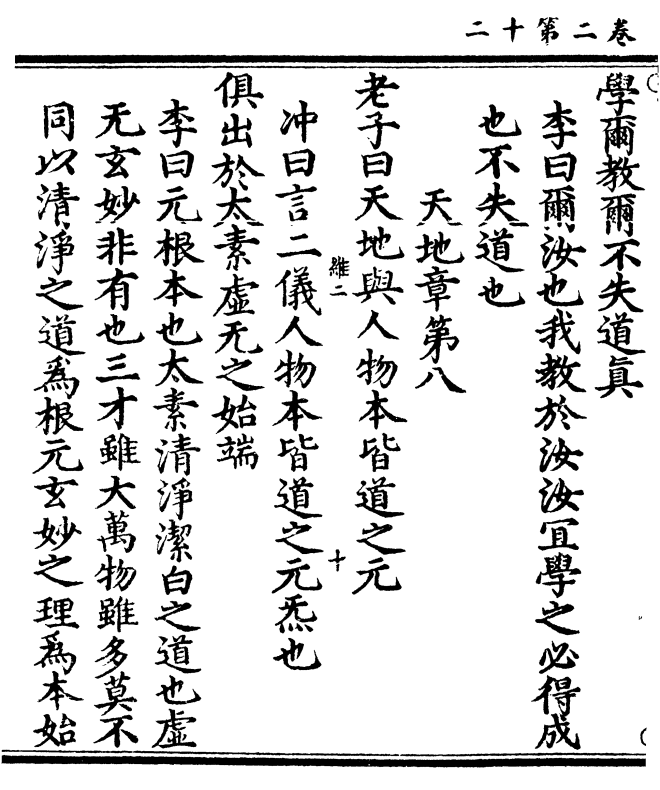 二十第二卷
學爾教爾不失道真
李曰爾汝也我教於汝汝冝學之必得成
也不失道也
天地章第八
老子曰天地與人物本皆道之元
維二
十
冲曰言二儀人物本皆道之元炁也
俱出於太素虛无之始端
李曰元根本也太素清淨潔白之道也虛
无玄妙非有也三才雖大萬物雖多莫不
同以清淨之道爲根元玄妙之理爲本始